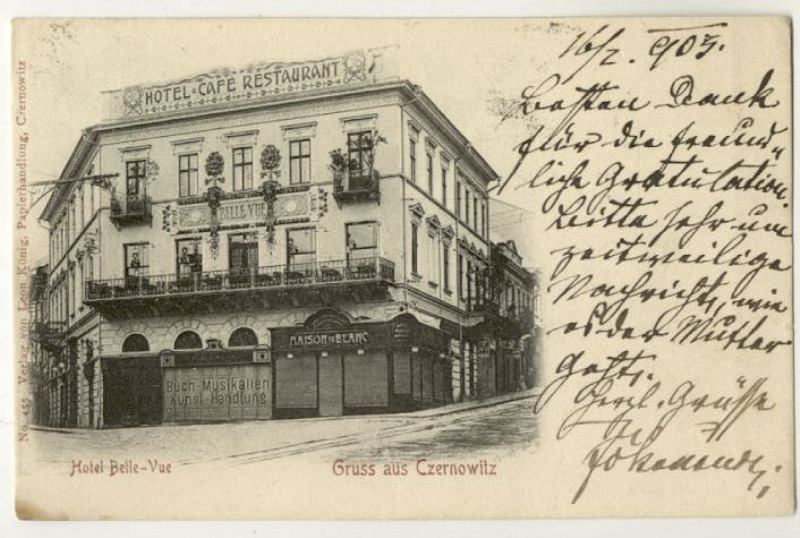 HOTEL CAFÉ RESTAURANT
BELLE VUE
MAISON DE BLANC
Buch-Musikalien
Kunst-Handlung
No. 455 Verlag von Leon König, Papierhandlung, Czernowitz
Hotel Belle-Vue
Gruss aus Czernowitz
16/2. 905.
Besten Dank
für die freund-
liche Gratulation.
Bitte sehr um
zeitweilige
Nachricht, wie
es der Mutter
geht.
Herzl. Grüsse